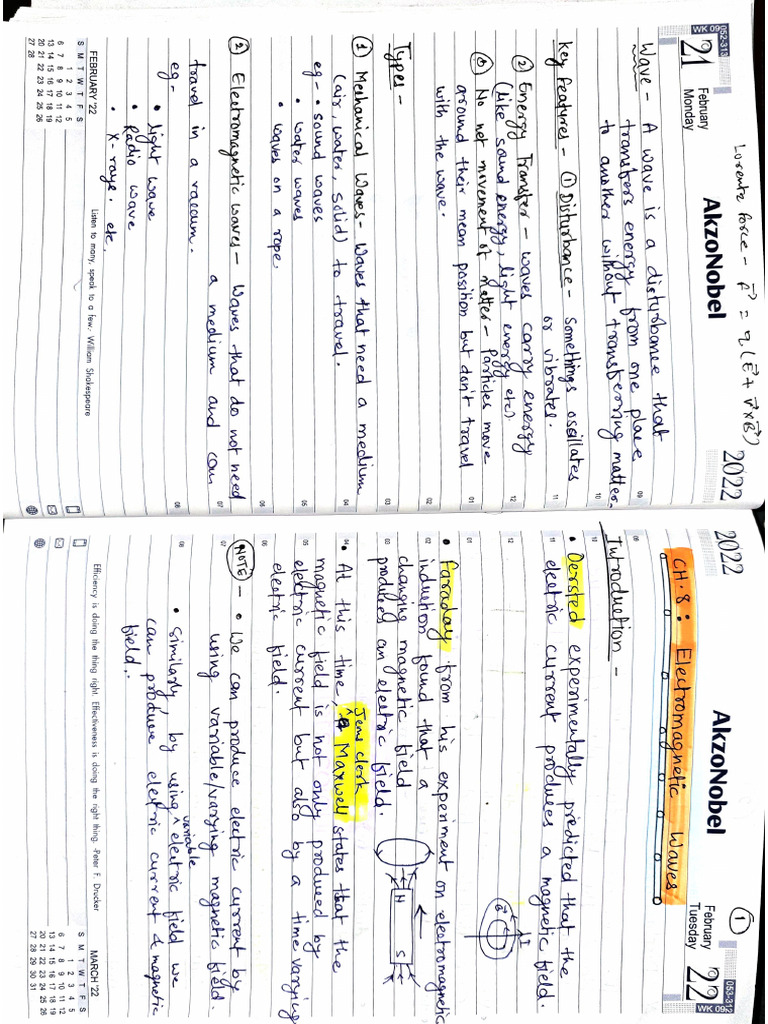 Lorentz force - F = q(E + v×B)
WK 09 052-313
21
February
Monday
AkzoNobel
2022
Wave - A wave is a disturbance that
transfers energy from one place
to another without transferring matter.
Key features - ① Disturbance - Somethings oscillates
or vibrates.
② Energy Transfer - waves carry energy
(like sound energy, light energy etc).
③ No net movement of Matter - Particles move
around their mean position but don't travel
with the wave.
Types -
① Mechanical Waves - Waves that need a medium
(air, water, solid) to travel.
eg - • sound waves
• water waves
• waves on a rope.
② Electromagnetic waves - Waves that do not need
a medium and can
travel in a vacuum.
eg -
• light wave
• Radio wave
• X-rays. etc.
09
10
11
12
01
02
03
04
05
06
07
08
FEBRUARY '22
S M T W T F S
1 2 3 4 5
6 7 8 9 10 11 12
13 14 15 16 17 18 19
20 21 22 23 24 25 26
27 28
Listen to many, speak to a few.- William Shakespeare
①
2022
AkzoNobel
February
Tuesday
22
053-312
WK 09
CH. 8 : Electromagnetic Waves
Introduction -
• Oersted experimentally predicted that the
electric current produces a magnetic field.
B I
• Faraday from his experiment on electromagnetic
induction found that a
changing magnetic field
produces an electric field.
N S
Jems clerk
• At this time, Maxwell states that the
magnetic field is not only produced by
electric current but also by a time varying
electric field.
NOTE - • We can produce electric current by
using variable/varying magnetic field.
variable
• Similarly, by using electric field we
can produce electric current & magnetic
field.
09
10
11
12
01
02
03
04
05
06
07
08
Efficiency is doing the thing right. Effectiveness is doing the right thing. -Peter F. Drucker
MARCH '22
S M T W T F S
1 2 3 4 5
6 7 8 9 10 11 12
13 14 15 16 17 18 19
20 21 22 23 24 25 26
27 28 29 30 31